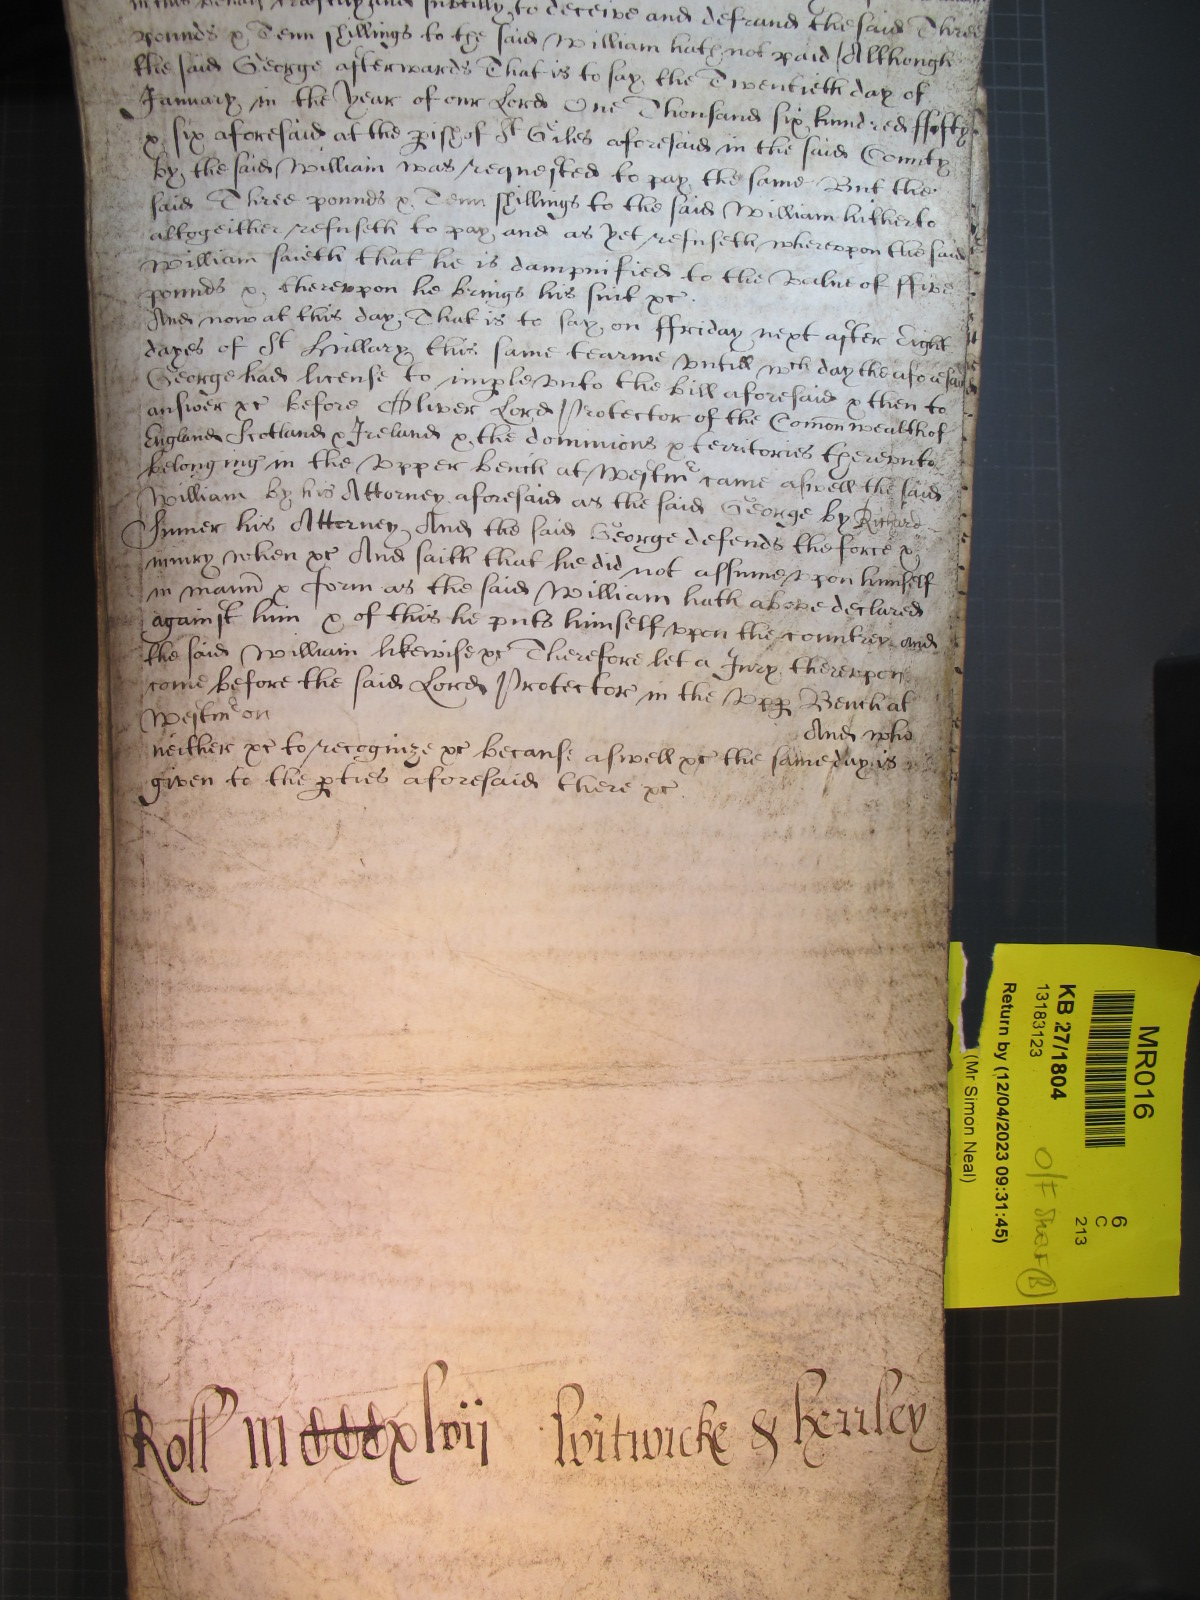 in this behalf craftily and subtilly to deceive and defraud the said Three
pounds & Tenn shillings to the said William hath not paid Although
the said George afterwards That is to say the Twentieth day of
January in the year of our Lord One Thousand six hundred ffifty
& six aforesaid at the pish of St Giles aforesaid in the said County
by the said William was requested to pay the same But the
said Three pounds & Tenn shillings to the said William hitherto
altogeither refuseth to pay and as yet refuseth whereupon the said
William saieth that he is dampnified to the value of ffive
pounds & thereupon he brings his suit &c.
And now at this day That is to say on ffriday next after Eight
dayes of St Hillary this same tearme untill wch day the aforesaid
George had license to imple unto the bill aforesaid & then to
answer &c before Oliver Lord Protector of the Comonwealth of
England Scotland & Ireland & the dominions & territories thereunto
belonging in the Upper bench at Westmr came aswell the said
William by his Attorney aforesaid as the said George by Richard
his Attorney And the said George defends the force &
iniury when &c And saith that he did not assume upon himself
in mann & form as the said William hath above declared
against him & of this he puts himself upon the countrey and
the said William likewise &c Therefore let a Jury thereupon
come before the said Lord Protector in the Upp Bench at
Westmr on And who
neither &c to recognize &c because aswell &c the same day is
given to the pties aforesaid there &c
Roll m xlvij Witwicke & Herrley
MR016
KB 27/1804
13183123
Return by (12/04/2023 09:31:45)
(Mr Simon Neal)
6
C
213